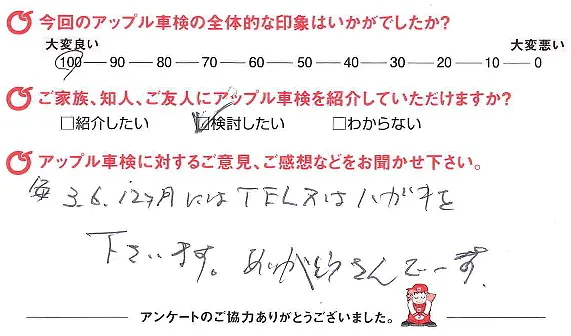 今回のアップル車検の全体的な印象はいかがでしたか?
大変良い 大変悪い
100 — 90 — 80 — 70 — 60 — 50 — 40 — 30 — 20 — 10 — 0
ご家族、知人、ご友人にアップル車検を紹介していただけますか?
□紹介したい ☑検討したい □わからない
アップル車検に対するご意見、ご感想などをお聞かせ下さい。
毎3.6.12ヶ月にはTEL又はハガキを
下さいます。ありがとうさんでーす.
アンケートのご協力ありがとうございました。